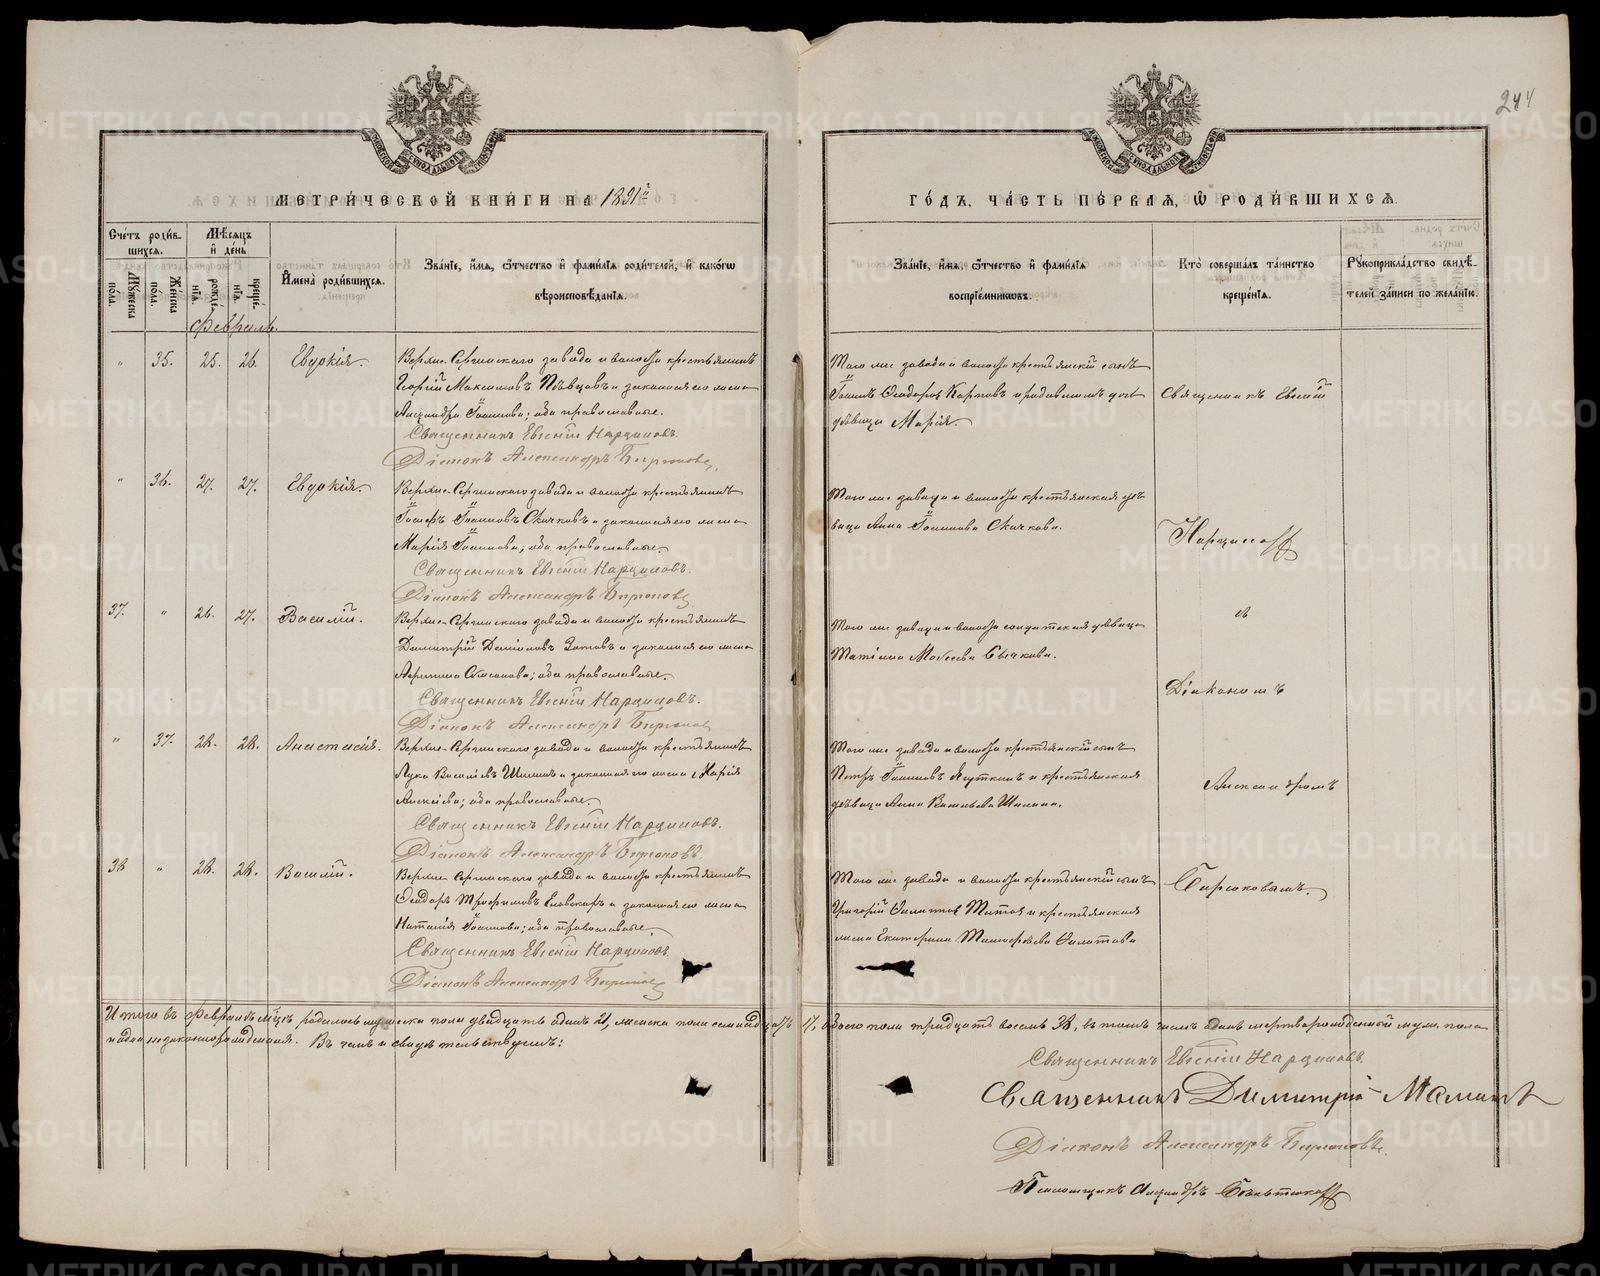 244
МЕТРИ́ЧЕСКОЙ КНИ́ГИ НА 1891й
ГО́ДЪ, ЧА́СТЬ ПЕ́РВАЯ, Ѡ РОДИ́ВШИХСЯ.
Сче́тъ роди́вшихся.
Му́жеска по́ла.
Же́нска по́ла.
Мѣ́сяцъ и де́нь
рожде́нїя.
креще́нїя.
Имена̀ роди́вшихся.
Зва́нїе, и́мя, ѻ҆́тчество и фами́лїя роди́телей, и како́гѡ
вѣроисповѣ́данїя.
Зва́нїе, и́мя, ѻ҆́тчество и фами́лїя
воспрїе́мникѡвъ.
Кто̀ соверша́лъ та́инство
креще́нїя.
Рꙋкоприкла́дство свидѣ́-
телей за́писи по жела́нїю.
Февраль.
" 35. 25. 26. Евдокія.
Верхне-Сергинскаго завода и волости крестьянинъ
Георгій Максимовъ Пѣвцовъ и законная его жена
Александра Іоаннова; оба православные.
Священникъ Евгеній Нарциссовъ.
Діаконъ Александръ Бирюковъ.
Того же завода и волости крестьянскій сынъ
Іоаннъ Ѳеодоровъ Карповъ и
дѣвица Марія.
Священникъ Евгеній
" 36. 27. 27. Евдокія.
Верхне-Сергинскаго завода и волости крестьянинъ
Іосифъ Іоанновъ Скачковъ и законная его жена
Марія Іоаннова; оба православные.
Священникъ Евгеній Нарциссовъ.
Діаконъ Александръ Бирюковъ
Того же завода и волости крестьянская дѣ-
вица Анна Іоаннова Скачкова.
Нарциссовъ
37. " 26. 27. Василій.
Верхне-Сергинскаго завода и волости крестьянинъ
Димитрій Даніиловъ Зотовъ и законная его жена
оба православные.
Священникъ Евгеній Нарциссовъ.
Діаконъ Александръ Бирюковъ
Того же завода и волости солдатская дѣвица
Татіана Моѵсеева Сычкова.
съ
Діакономъ
" 37. 28. 28. Анастасія.
Верхне-Сергинскаго завода и волости крестьянинъ
Лука Васильевъ Шилинъ и законная его жена Марія
Алексѣева; оба православные.
Священникъ Евгеній Нарциссовъ.
Діаконъ Александръ Бирюковъ.
Того же завода и волости крестьянскій сынъ
Петръ Іоанновъ и крестьянская
дѣвица Анна Васильева Шилина.
Александромъ
38 " 28. 28. Василій.
Верхне-Сергинскаго завода и волости крестьянинъ
Ѳеодоръ Трофимовъ и законная его жена
Наталія Іоаннова; оба православные.
Священникъ Евгеній Нарциссовъ.
Діаконъ Александръ Бирюковъ
Того же завода и волости крестьянскій сынъ
Григорій Филатовъ Титовъ и крестьянская
жена Екатерина Тимоѳеева Филатова
Бирюковымъ.
Итого въ Февралѣ мѣсяцѣ родилось мужеска пола двадцать одинъ 21, женска пола семнадцать 17, обоего пола тридцать восемь 38, въ томъ числѣ одинъ мертворожденный муж. пола
и одна незаконнорожденная. Въ чемъ и свидѣтельствуемъ:
Священникъ Евгеній Нарциссовъ.
Священникъ Димитрій Маминъ
Діаконъ Александръ Бирюковъ.
Псаломщикъ Александръ